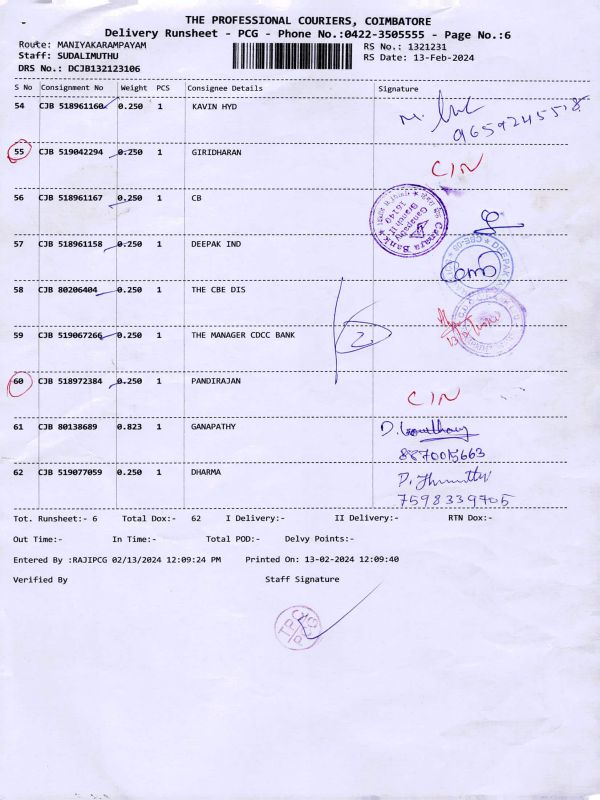 THE PROFESSIONAL COURIERS, COIMBATORE
Delivery Runsheet - PCG - Phone No.:0422-3505555 - Page No.:6
Route: MANIYAKARAMPAYAM
RS No.: 1321231
Staff: SUDALIMUTHU
RS Date: 13-Feb-2024
DRS No.: DCJB132123106
S No Consignment No Weight PCS Consignee Details Signature
54 CJB 518961160 0.250 1 KAVIN HYD
9659245518
55 CJB 519042294 0.250 1 GIRIDHARAN CIN
56 CJB 518961167 0.250 1 CB
Canara Bank
Ganapathy
Branch II
16149
57 CJB 518961158 0.250 1 DEEPAK IND
58 CJB 80206404 0.250 1 THE CBE DIS
59 CJB 519067266 0.250 1 THE MANAGER CDCC BANK 2
60 CJB 518972384 0.250 1 PANDIRAJAN CIN
61 CJB 80138689 0.823 1 GANAPATHY
8870015663
62 CJB 519077059 0.250 1 DHARMA
7598339705
Tot. Runsheet:- 6 Total Dox:- 62 I Delivery:- II Delivery:- RTN Dox:-
Out Time:- In Time:- Total POD:- Delvy Points:-
Entered By :RAJIPCG 02/13/2024 12:09:24 PM Printed On: 13-02-2024 12:09:40
Verified By Staff Signature